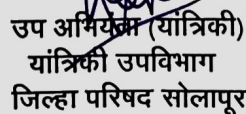 उप अभियंता (यांत्रिकी)
यांत्रिकी उपविभाग
जिल्हा परिषद सोलापूर